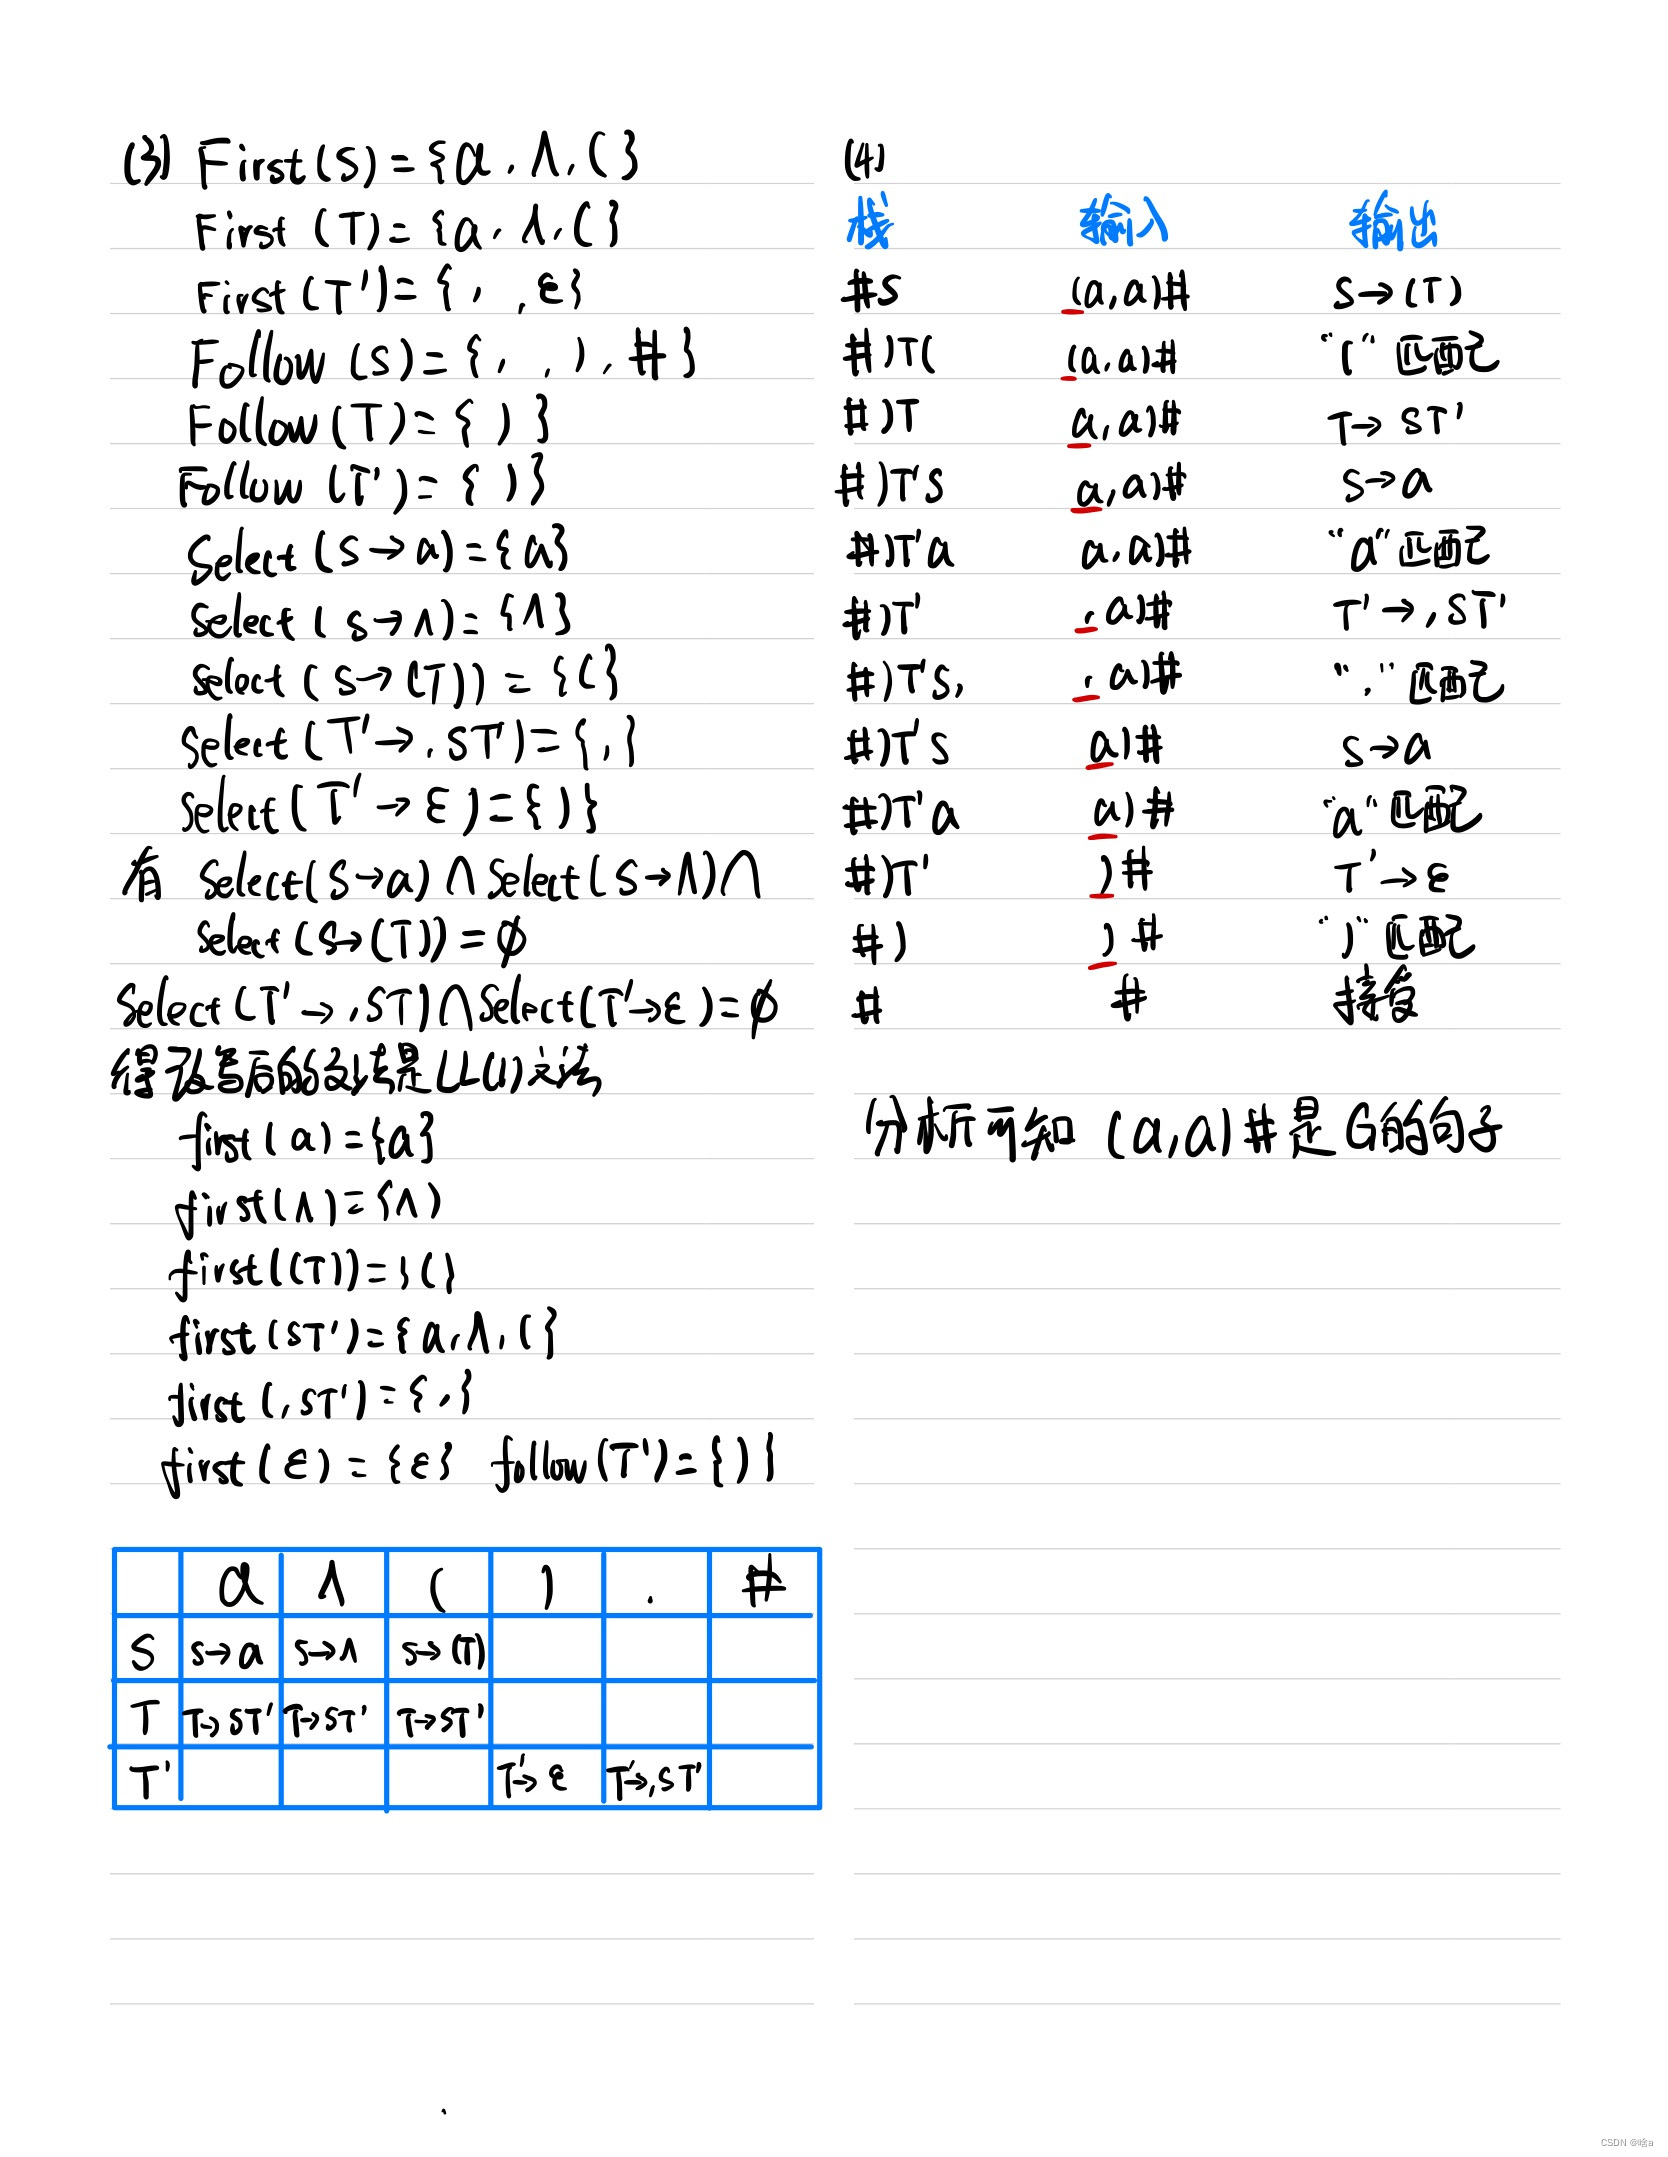 (3) First(S)={a,Λ,(}
First(T)={a,Λ,(}
First(T')={, ,ε}
Follow(S)={, , ),#}
Follow(T)={ ) }
Follow(T')={ )}
Select(S→a)={a}
Select(S→Λ)={Λ}
Select(S→(T))={(}
Select(T'→,ST')={,}
Select(T'→ε)={)}
有 Select(S→a)∩Select(S→Λ)∩
Select(S→(T))=∅
Select(T'→,ST)∩Select(T'→ε)=∅
得改写后的文法是LL(1)文法
first(a)={a}
first(Λ)={Λ)
first((T))={(}
first(ST')={a,Λ,(}
first(,ST')={,}
first(ε)={ε} follow(T')={)}
a Λ ( ) , #
S S→a S→Λ S→(T)
T T→ST' T→ST' T→ST'
T' T'→ε T'→,ST'
(4)
栈 输入 输出
#S (a,a)# S→(T)
#)T( (a,a)# "("匹配
#)T a,a)# T→ST'
#)T'S a,a)# S→a
#)T'a a,a)# "a"匹配
#)T' ,a)# T'→,ST'
#)T'S, ,a)# ","匹配
#)T'S a)# S→a
#)T'a a)# "a"匹配
#)T' )# T'→ε
#) )# ")"匹配
# # 接受
分析可知 (a,a)#是G的句子
CSDN @啥a